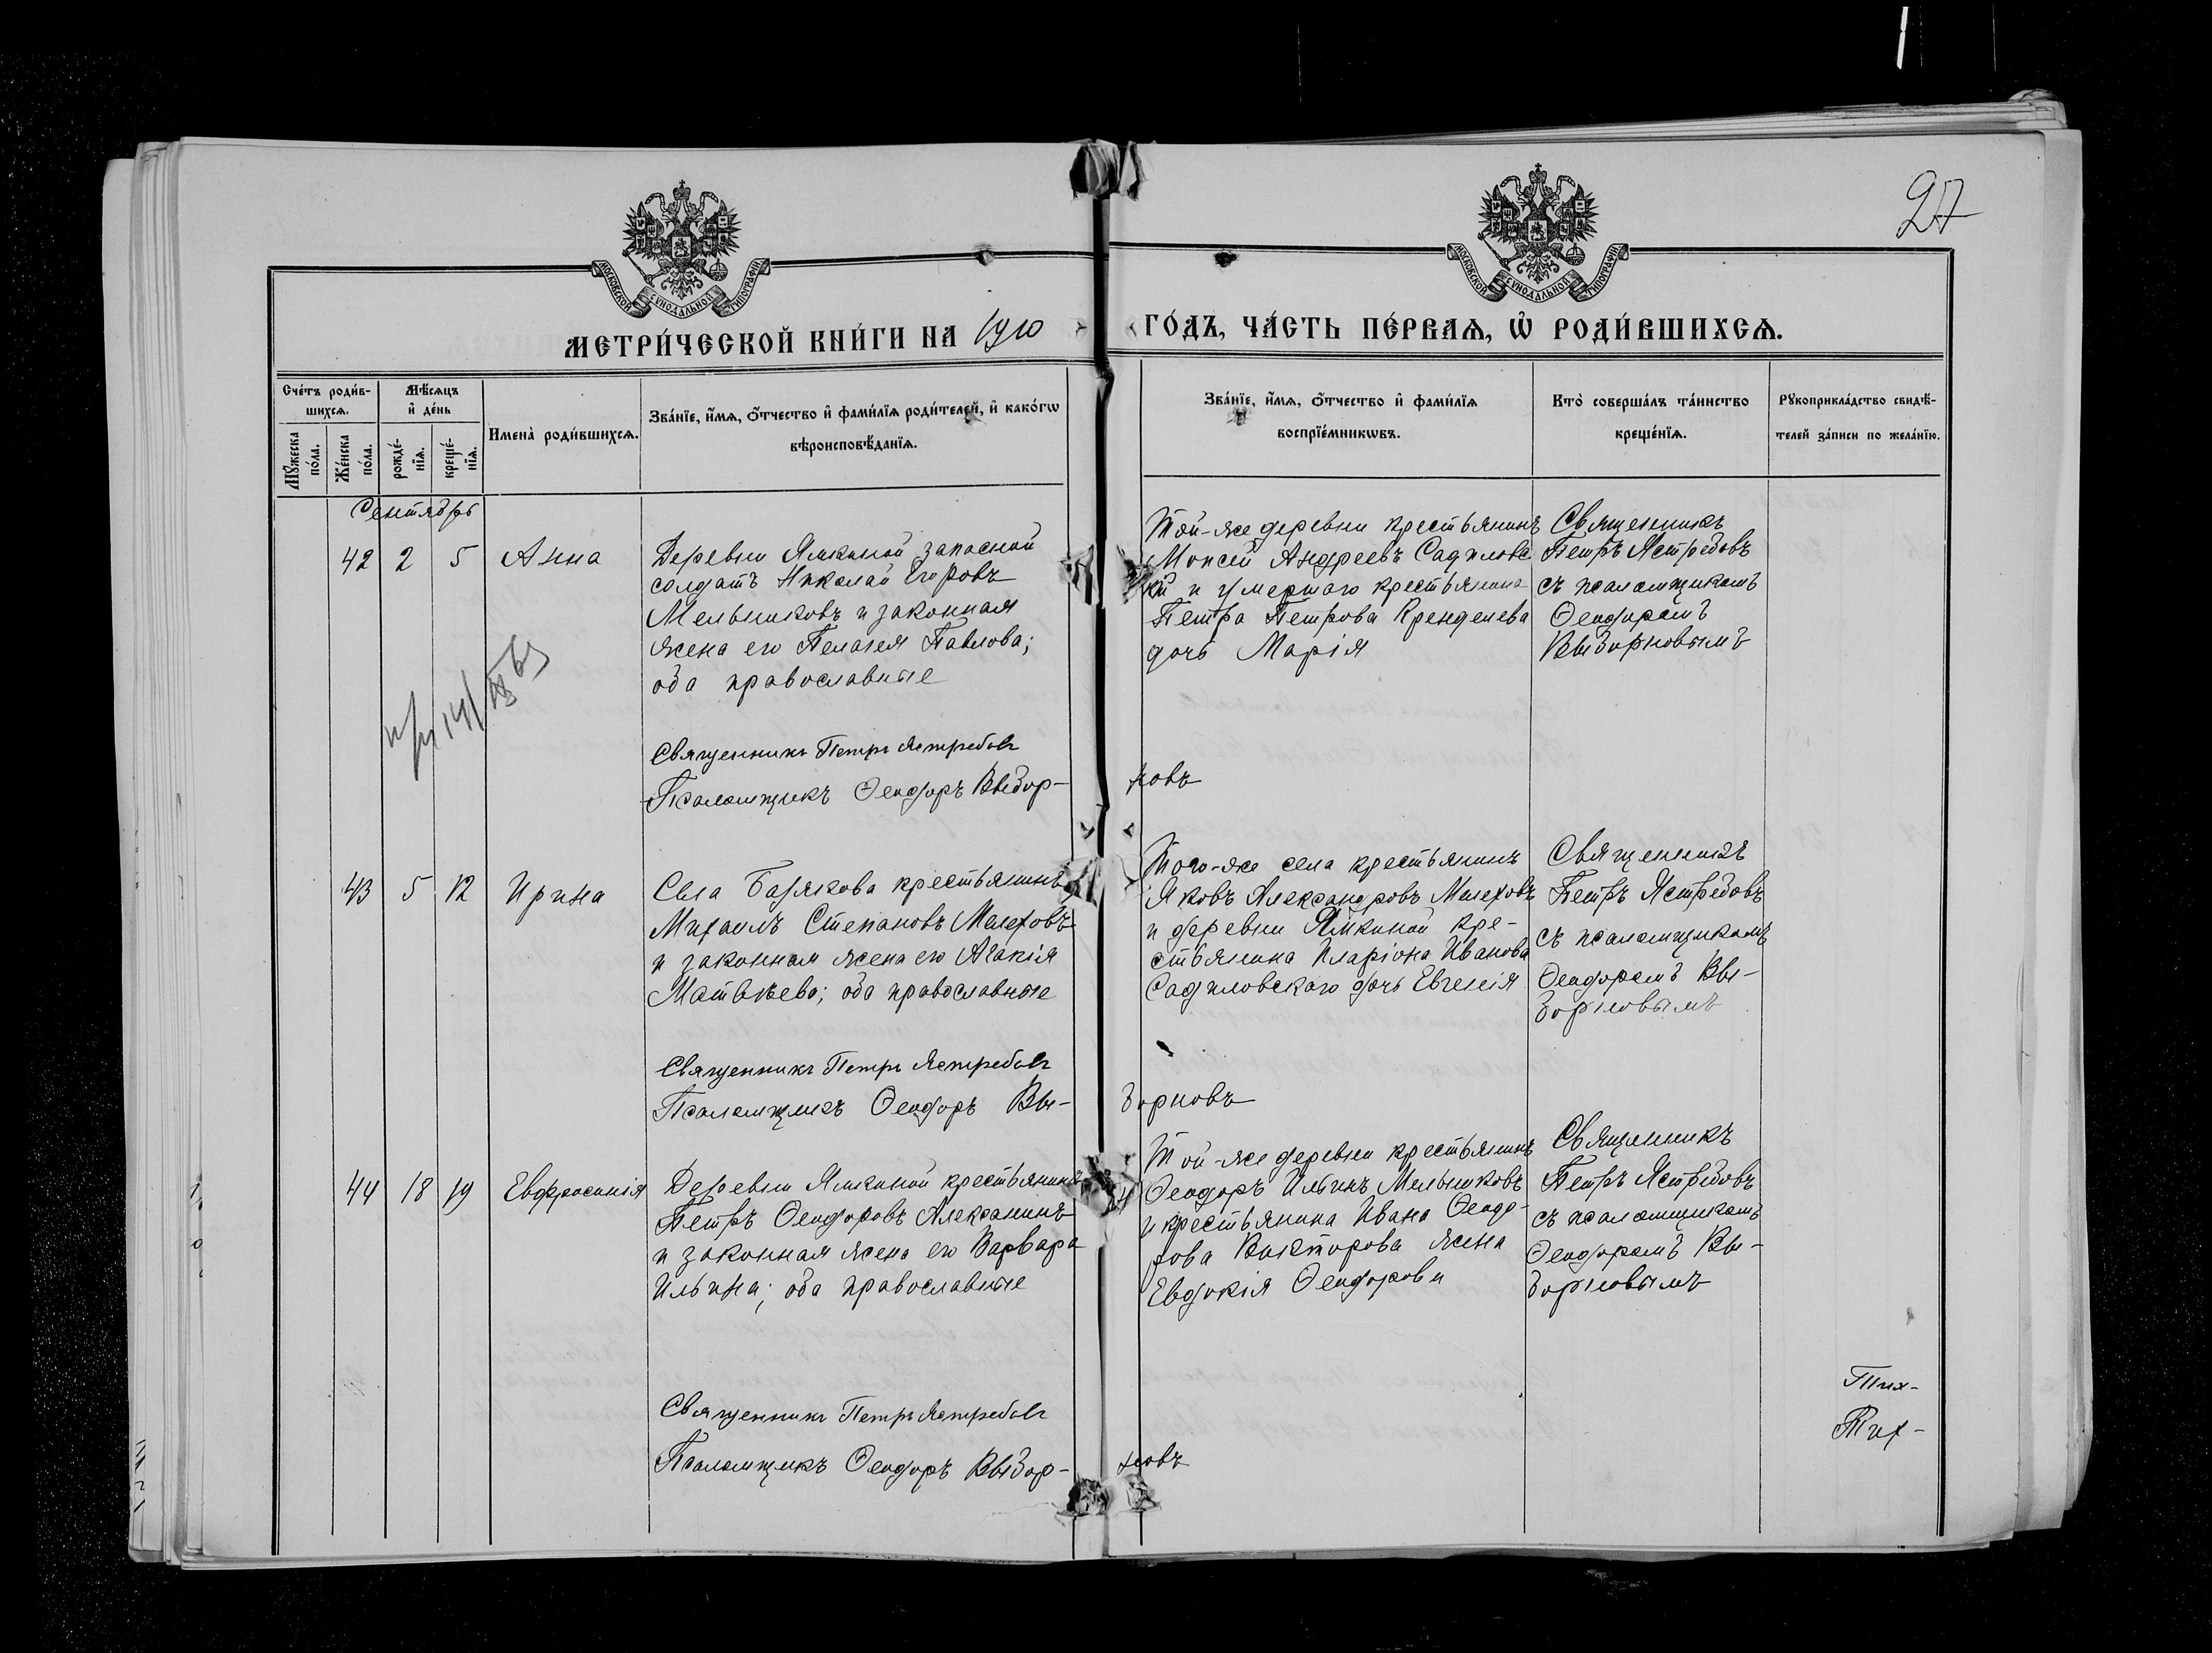 27
МОСКОВСКОЙ СѴНОДАЛЬНОЙ ТИПОГРАФІИ
МОСКОВСКОЙ СѴНОДАЛЬНОЙ ТИПОГРАФІИ
МЕТРИ́ЧЕСКОЙ КНИ́ГИ НА 1910
ГО́ДЪ, ЧА́СТЬ ПЕ́РВАѦ, Ѽ РОДИ́ВШИХСѦ.
Сче́тъ роди́в-
шихсѧ.
Мѣ́сѧцъ
и҆ де́нь
Мꙋ́жеска
по́ла.
Же́нска
по́ла.
рожде́-
нїѧ.
креще́-
нїѧ.
Имена̀ роди́вшихсѧ.
Зва́нїе, и҆́мѧ, ѻ҆́тчество и҆ фами́лїѧ роди́телей, и҆ како́гѡ
вѣроисповѣ́данїѧ.
Зва́нїе, и҆́мѧ, ѻ҆́тчество и҆ фами́лїѧ
воспрїе́мникѡвъ.
Кто̀ соверша́лъ та́инство
креще́нїѧ.
Рꙋкоприкла́дство свидѣ́-
телей за́писи по жела́нїю.
Сентябрь
42 2 5 Анна
Деревни Ямкиной запасной
солдатъ Николай Егоровъ
Мельниковъ и законная
жена его Пелагея Павлова;
оба православные
Той-же деревни крестьянинъ
Моисей Андреевъ Садиловс
кій и умершаго крестьянина
Петра Петрова Кренделева
дочь Марія
Священникъ
Петръ Ястребовъ
съ псаломщикомъ
Ѳеодоромъ
Выборновымъ
Священникъ Петръ Ястребовъ
Псаломщикъ Ѳеодоръ Выбор-
новъ
43 5 12 Ирина
Села Барякова крестьянинъ
Михаилъ Степановъ Мелеховъ
и законная жена его Агапія
Матвѣева; оба православные
Того-же села крестьянинъ
Яковъ Александровъ Мелеховъ
и деревни Ямкиной кре-
стьянина Иларіона Иванова
Садиловскаго дочь Евгенія
Священникъ
Петръ Ястребовъ
съ псаломщикомъ
Ѳеодоромъ Вы-
борновымъ
Священникъ Петръ Ястребовъ
Псаломщикъ Ѳеодоръ Вы-
борновъ
44 18 19 Евфросинія
Деревни Ямкиной крестьянинъ
Петръ Ѳеодоровъ Алексанинъ
и законная жена его Варвара
Ильина; оба православные
Той-же деревни крестьянинъ
Ѳеодоръ Ильинъ Мельниковъ
и крестьянина Ивана Ѳеодо-
рова Викторова жена
Евдокія Ѳеодорова
Священникъ
Петръ Ястребовъ
съ псаломщикомъ
Ѳеодоромъ Вы-
борновымъ
Священникъ Петръ Ястребовъ
Псаломщикъ Ѳеодоръ Выбор-
новъ
Тих-
Тих-